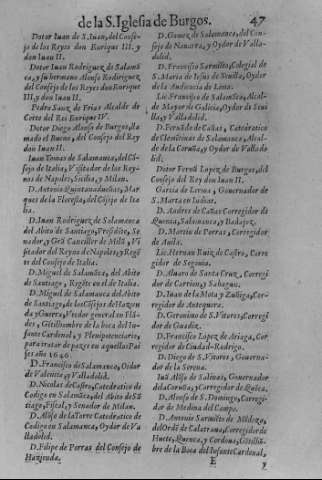 de la S. Iglesia de Burgos. 47
Dotor Iuan de S. Iuan, del Consejo
jo de los Reyes don Enrique III. y
don Iuan II.
Dotor Iuan Rodriguez de Salamanca,
y su hermano Alonso Rodiriguez,
del Consejo de los Reyes don Enrique
III. y don Iuan II.
Pedro Sanz de Frias Alcalde de
Corte del Rei Enrique IV.
Dotor Diego Alonso de Burgos, llamado
el Bueno, del Consejo del Rey
don Iuan II.
Iuan Tomas de Salamanca, del Cõsejo
de Italia, Visitador de los Reynos
de Napoles, Sicilia, y Milan.
D. Antonio Quintanadueñas, Marques
de la Floresta, del Cõsejo de Italia.
D. Iuan Rodriguez de Salamanca
del Abito de Santiago, Presidẽte, Senador,
y Grã Canciller de Milã, Visitador
del Reyno de Napoles, y Regẽte
del Consejo de Italia.
D. Miguel de Salamãca, del Abito
de Santiago, Regẽte en el de Italia.
D. Miguel de Salamanca del Abito
de Santiago, de los Cõsejos de Hazienda
y Guerra, Veedor general en Flãdes,
Gẽtilhombre de la boca del Infante
Cardenal, y Plenipotenciario,
para tratar de pazes en aquellos Paises
año 1646.
D. Francisco de Salamanca, Oidor
de Valencia, y Valladolid.
D. Nicolas de Castro, Catedratico de
Codigo en Salamãca, del Abito de Sãtiago,
Fiscal, y Senador de Milan.
D. Alõso de la Torre Catedratico de
Codigo en Salamanca, Oydor de Valladolid.
D. Filipe de Porras del Consejo de
Hazienda.
D. Gomez de Salamanca, del Consejo
de Nauarra, y Oydor de Valladolid.
D. Francisco Sarmiẽto, Colegial de
S. Maria de Iesus de Seuilla, Oydor
de la Audiencia de Lima.
Lic. Francisco de Salamãca, Alcalde
Mayor de Galicia, Oydor de Seuilla,
y Valladolid.
D. Fernãdo de Cañas, Catedratico
de Clemẽtinas de Salamanca, Alcalde
de la Coruña, y Oydor de Valladolid.
Dotor Fernã Lopez de Burgos, del
Consejo del Rey don Iuan II.
Garcia de Lerma, Gouernador de
S. Marta en Indias.
D. Andres de Cañas Corregidor de
Quença, Salamanca, y Badajoz.
D. Martin de Porras, Corregidor
de Auila.
Lic. Hernan Ruiz de Castro, Corregidor
de Segouia.
D. Aluaro de Santa Cruz, Corregidor
de Carrion, y Sahagun.
D. Iuan de la Mota y Zuñiga, Corregidor
de Antequera.
D. Geronimo de S. Vitores, Corregidor
de Guadix.
D. Francisco Lopez de Arriaga, Corregidor
de Ciudad-Rodrigo.
D. Diego de S. Vitores, Gouernador
de la Serena.
Iuã Alõso de Salinas, Gouernador
de la Coruña, y Corregidor de Quẽca.
D. Alonso de S. Domingo, Corregidor
de Medina del Campo.
D. Antonio Sarmiẽto de Mẽdoza,
del Ordẽ de Calatraua, Corregidor de
Huete, Quença, y Cordoua, Gẽtilhõbre
de la Boca del Infante Cardenal,
E y